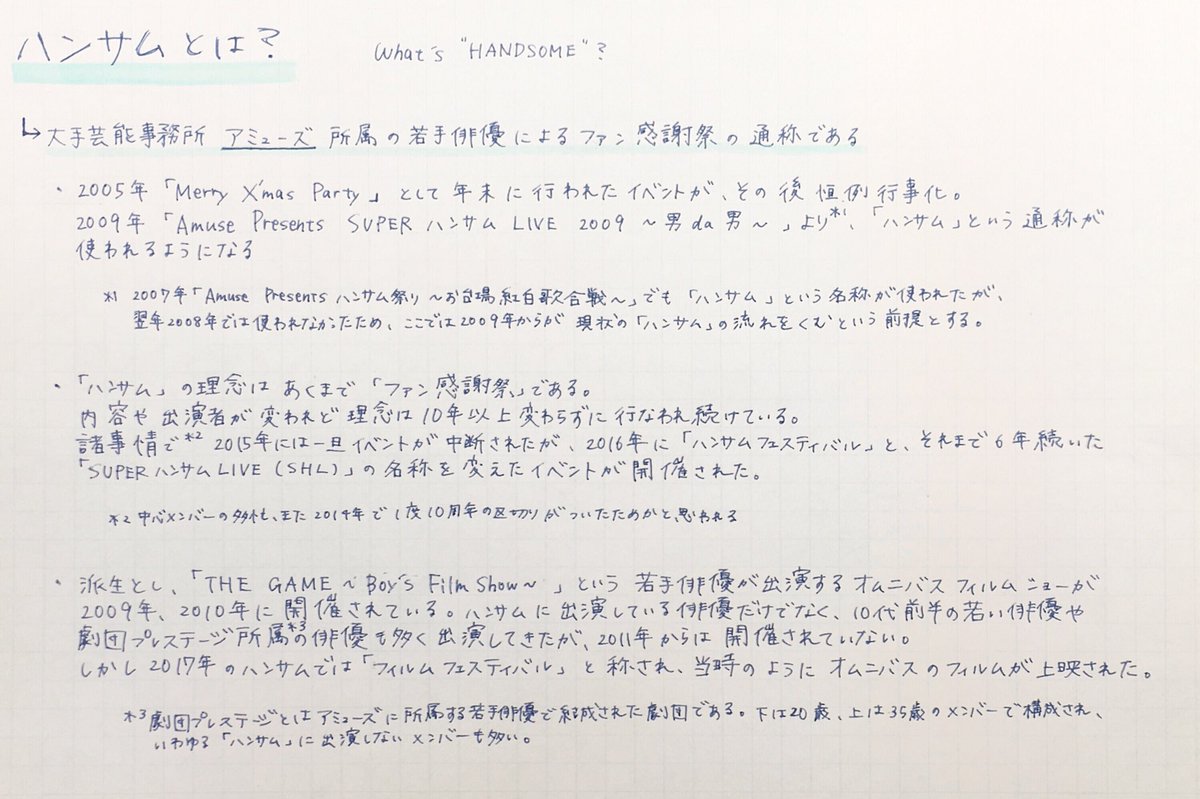 ハンサムとは? What's "HANDSOME"?
↳ 大手芸能事務所 アミューズ 所属の若手俳優によるファン感謝祭の通称である
・ 2005年「Merry X'mas Party」として年末に行われたイベントが、その後恒例行事化。
2009年「Amuse Presents SUPER ハンサム LIVE 2009 〜男 da 男〜」より*1、「ハンサム」という通称が
使われるようになる
*1 2007年「Amuse Presents ハンサム祭り 〜お台場紅白歌合戦〜」でも「ハンサム」という名称が使われたが、
翌年2008年では使われなかったため、ここでは2009年からが現状の「ハンサム」の流れをくむという前提とする。
・「ハンサム」の理念はあくまで「ファン感謝祭」である。
内容や出演者が変われど理念は10年以上変わらずに行なわれ続けている。
諸事情で*2 2015年には一旦イベントが中断されたが、2016年に「ハンサムフェスティバル」と、それまで6年続いた
「SUPERハンサムLIVE(SHL)」の名称を変えたイベントが開催された。
*2 中心メンバーの多忙、また2014年で1度10周年の区切りがついたためかと思われる
・ 派生とし、「THE GAME 〜Boy's Film Show〜」という若手俳優が出演するオムニバスフィルムショーが
2009年、2010年に開催されている。ハンサムに出演している俳優だけでなく、10代前半の若い俳優や
劇団プレステージ所属*3の俳優も多く出演してきたが、2011年からは開催されていない。
しかし2017年のハンサムでは「フィルムフェスティバル」と称され、当時のようにオムニバスのフィルムが上映された。
*3 劇団プレステージとはアミューズに所属する若手俳優で結成された劇団である。下は20歳、上は35歳のメンバーで構成され、
いわゆる「ハンサム」に出演しないメンバーも多い。